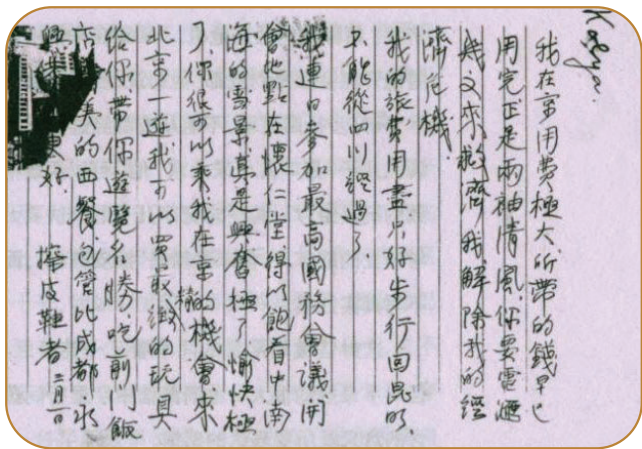 Katya.
我在京用費極大所帶的錢早已
用完正是兩袖清風,你要電滙
幾文來救濟我,解除我的經
濟危機.
我的旅費用盡,只好步行回昆明,
不能從四川經過了.
我連日參加最高國務會議開
會地點在懷仁堂,得以飽看中南
海的雪景,真是興奮極了,愉快極
了,你很可以乘我在京的機會來
北京一遊我可以買最緻的玩具
精
給你,帶你遊覽名勝,吃前門飯
店 美的西餐包管比成都 水
興 更好. 擦皮鞋者 三月一日